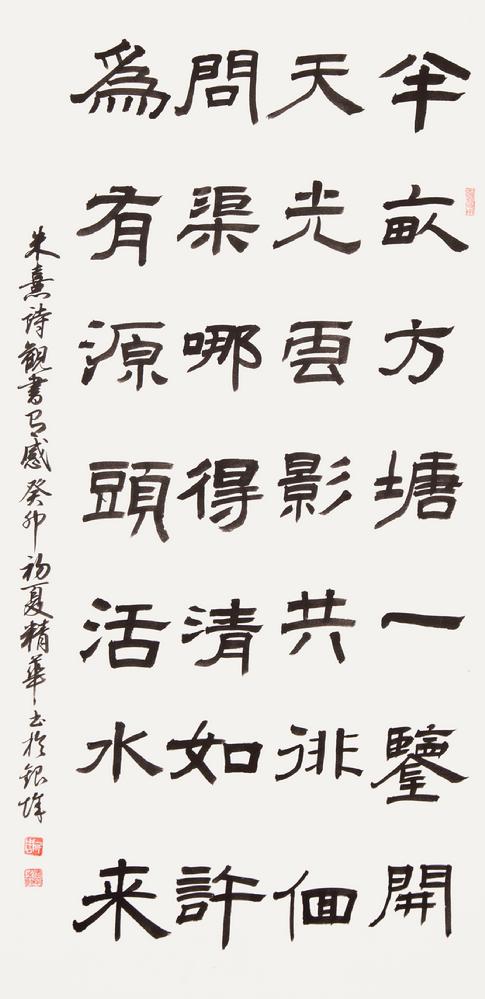 半畝方塘一鑒開
天光雲影共徘徊
問渠哪得清如許
為有源頭活水来
朱熹詩觀書有感癸卯初夏精華书於銀川